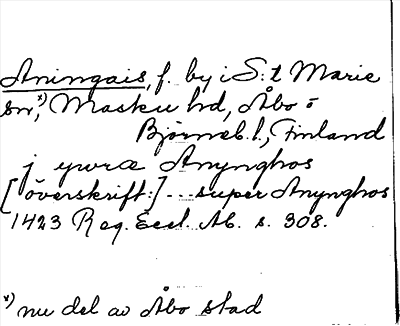 Aningais, f. by i S:t Marie
sn,*) Masku hd, Åbo o
Björneb. l., Finland
j ywræ Anynghos
[överskrift:] ... super Anynghos
1423 Reg. Eccl. Ab. s. 308.
*) nu del av Åbo stad